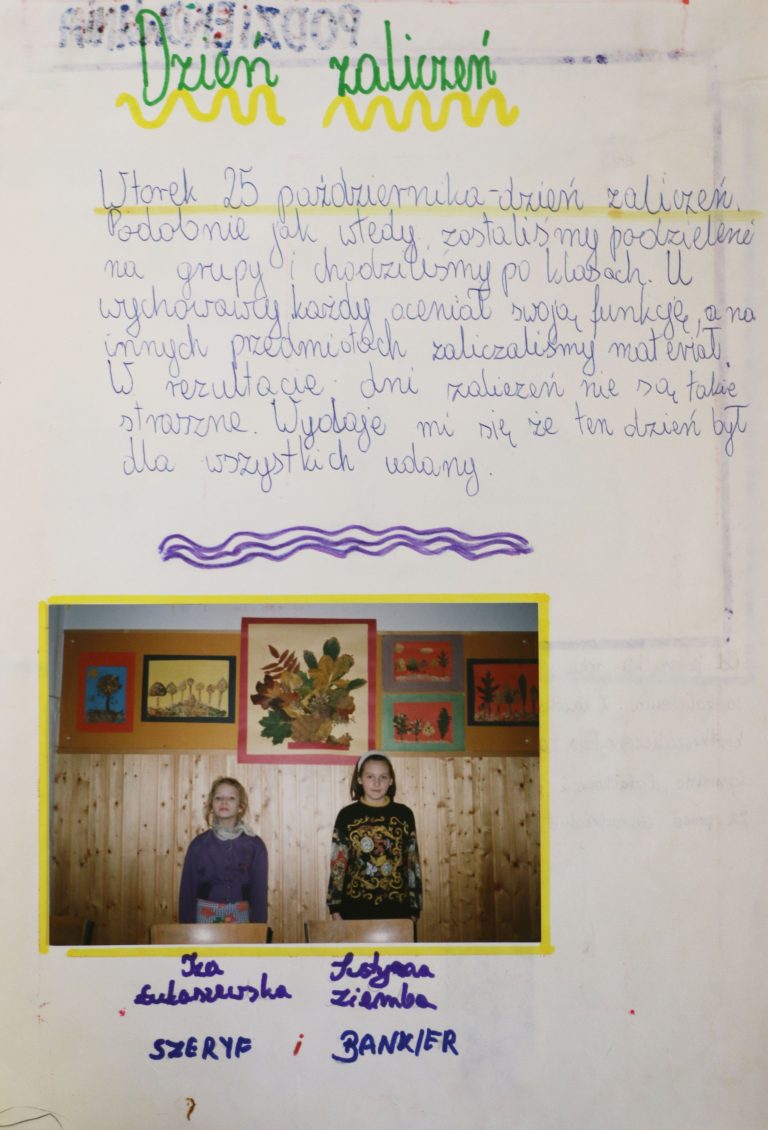 PODZIĘKOWANIA
Dzień zaliczeń
Wtorek 25 października - dzień zaliczeń.
Podobnie jak wtedy, zostaliśmy podzieleni
na grupy i chodziliśmy po klasach. U
wychowawcy każdy oceniał swoją funkcję, a na
innych przedmiotach zaliczaliśmy materiał.
W rezultacie dni zaliczeń nie są takie
straszne. Wydaje mi się że ten dzień był
dla wszystkich udany.
Iza
Łukaszewska
Ziemba
SZERYF i BANKIER